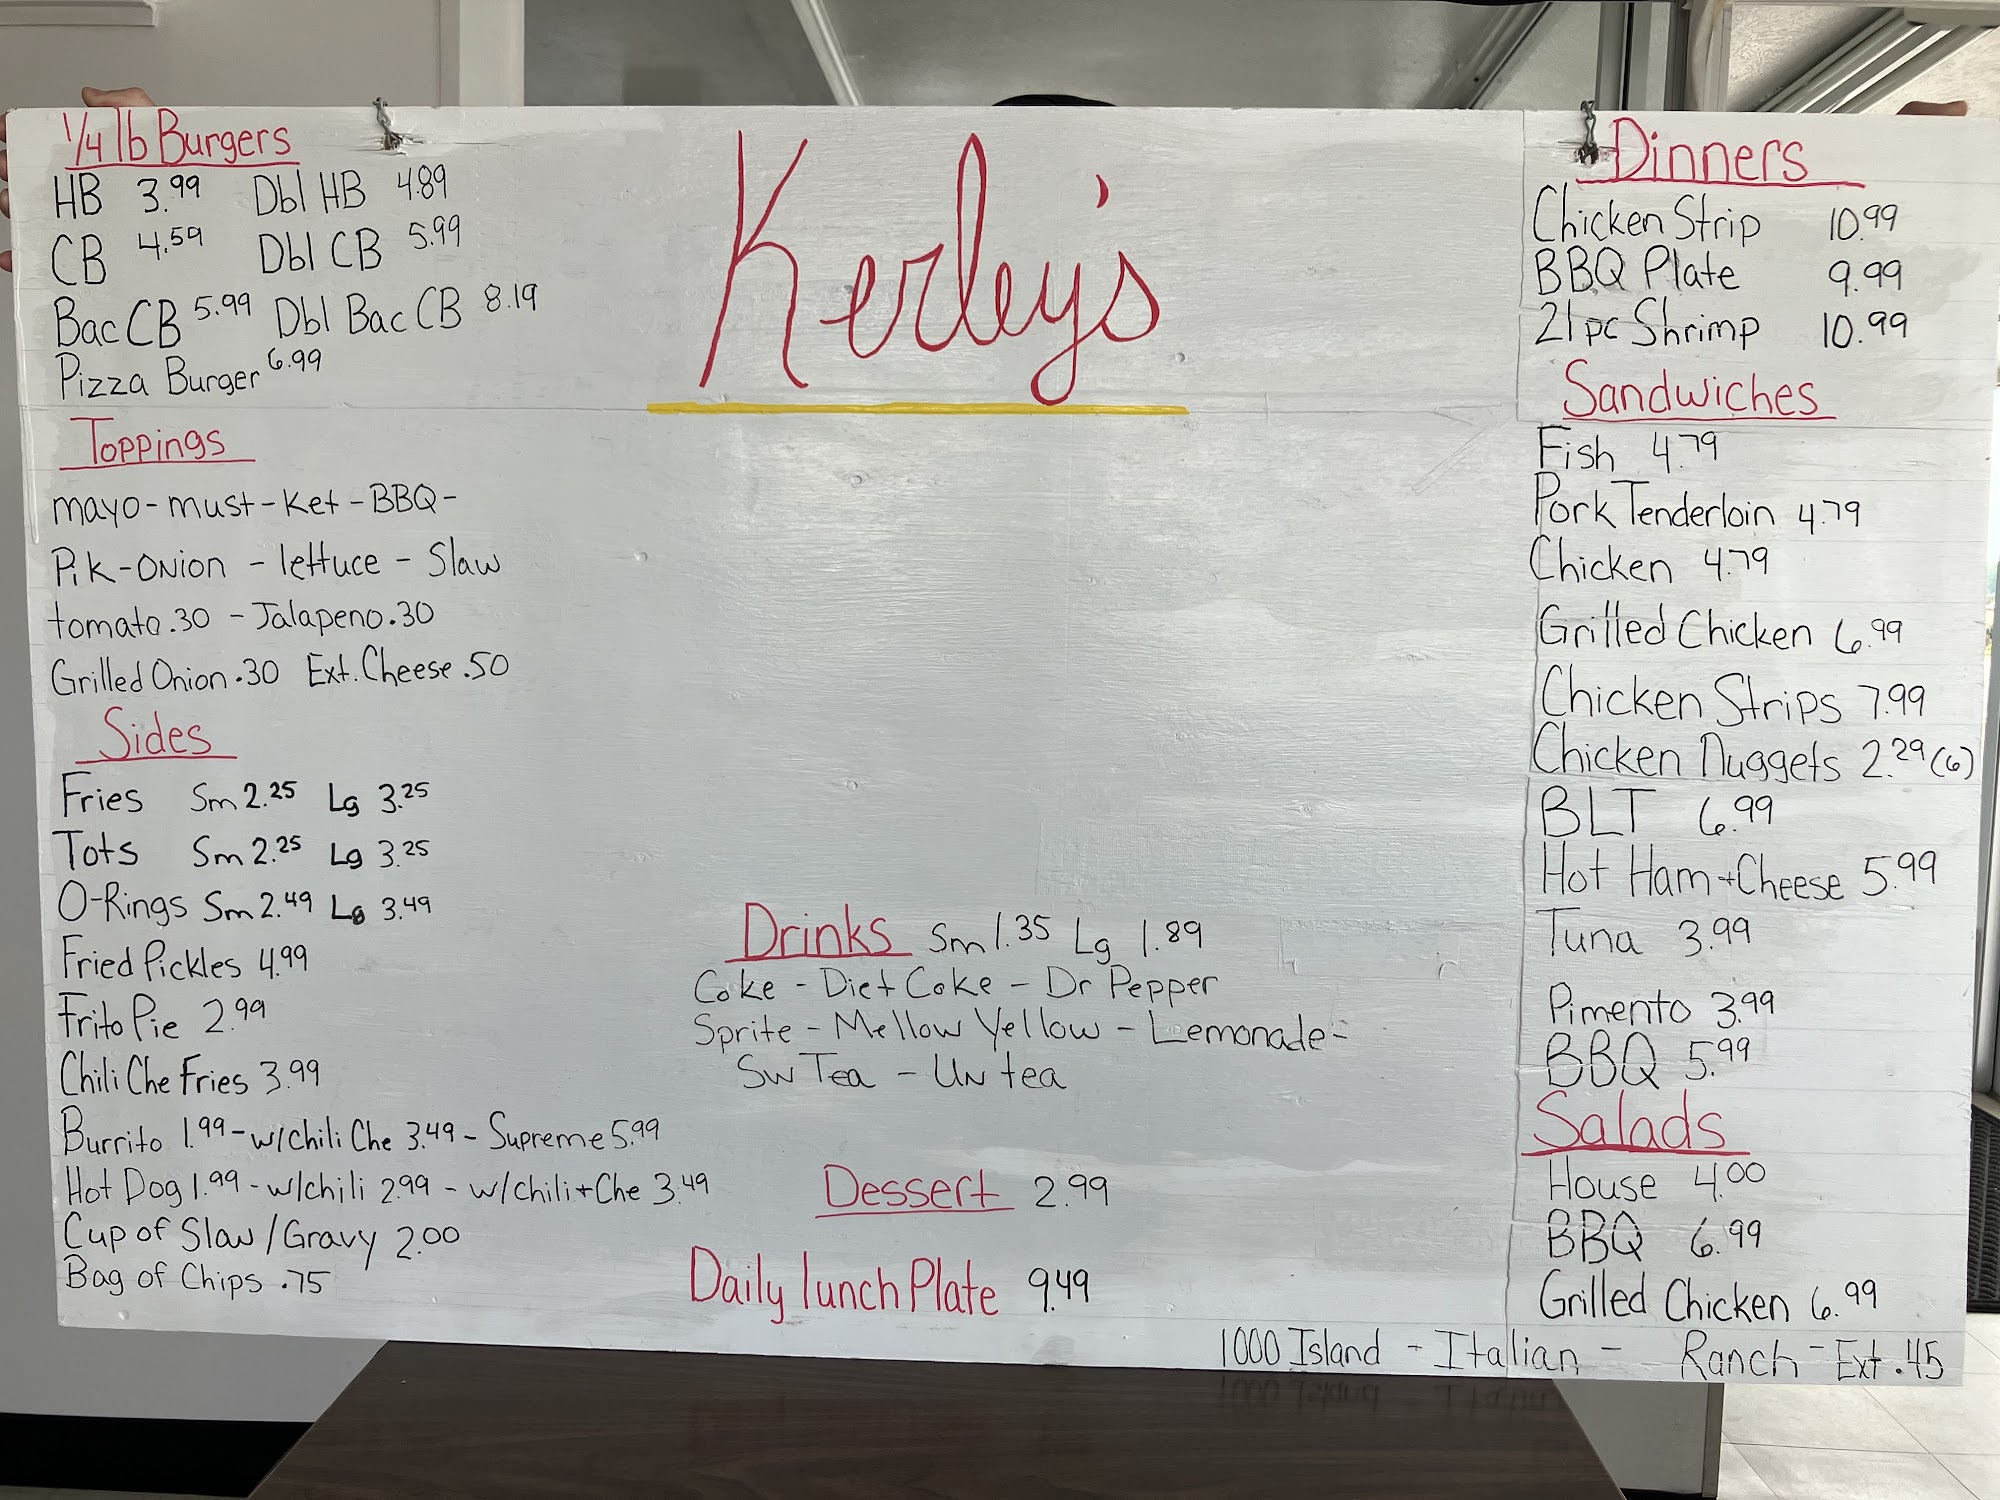 1/4 lb Burgers
HB 3.99 Dbl HB 4.89
CB 4.59 Dbl CB 5.99
Bac CB 5.99 Dbl Bac CB 8.19
Pizza Burger 6.99
Toppings
mayo - must - Ket - BBQ -
Pik - Onion - lettuce - Slaw
tomato .30 - Jalapeno .30
Grilled Onion .30 Ext. Cheese .50
Sides
Fries Sm 2.25 Lg 3.25
Tots Sm 2.25 Lg 3.25
O-Rings Sm 2.49 Lg 3.49
Fried Pickles 4.99
Frito Pie 2.99
Chili Che Fries 3.99
Burrito 1.99 - w/chili Che 3.49 - Supreme 5.99
Hot Dog 1.99 - w/chili 2.99 - w/chili + Che 3.49
Cup of Slaw / Gravy 2.00
Bag of Chips .75
Kerley's
Drinks Sm 1.35 Lg 1.89
Coke - Diet Coke - Dr Pepper
Sprite - Mellow Yellow - Lemonade -
Sw Tea - Un tea
Dessert 2.99
Daily lunch Plate 9.49
Dinners
Chicken Strip 10.99
BBQ Plate 9.99
21 pc Shrimp 10.99
Sandwiches
Fish 4.79
Pork Tenderloin 4.79
Chicken 4.79
Grilled Chicken 6.99
Chicken Strips 7.99
Chicken Nuggets 2.29 (6)
BLT 6.99
Hot Ham + Cheese 5.99
Tuna 3.99
Pimento 3.99
BBQ 5.99
Salads
House 4.00
BBQ 6.99
Grilled Chicken 6.99
1000 Island - Italian - Ranch - Ext .45